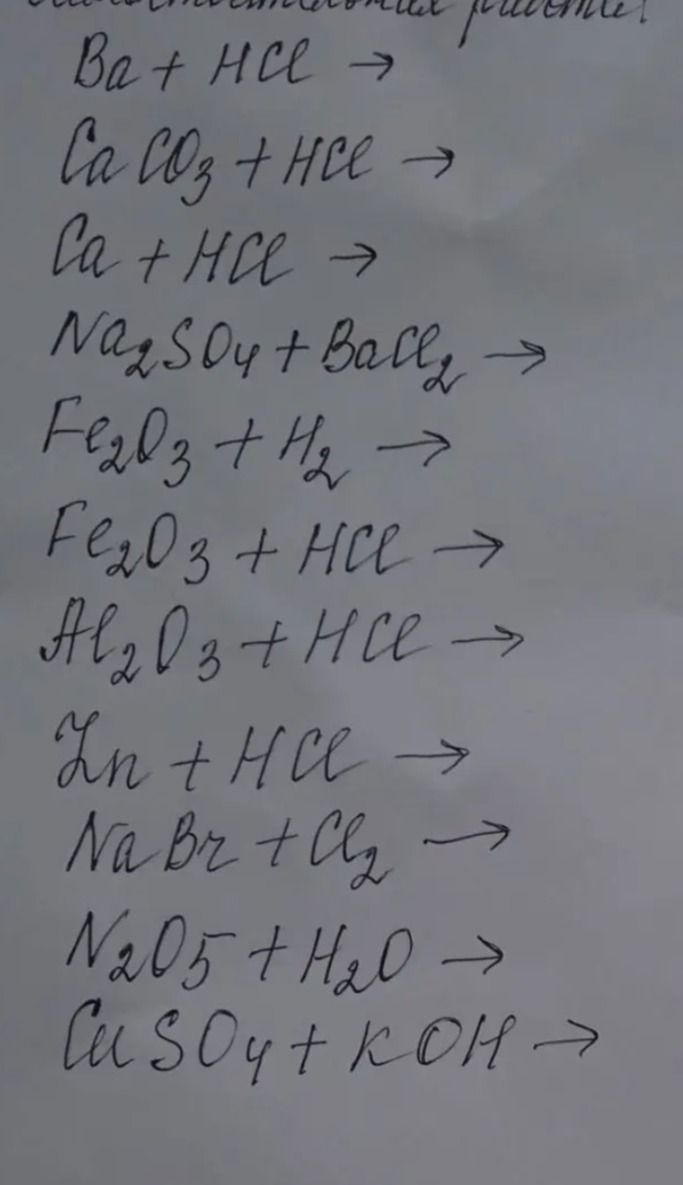 Ba + HCl →
CaCO₃ + HCl →
Ca + HCl →
Na₂SO₄ + BaCl₂ →
Fe₂O₃ + H₂ →
Fe₂O₃ + HCl →
Al₂O₃ + HCl →
Zn + HCl →
NaBr + Cl₂ →
N₂O₅ + H₂O →
CuSO₄ + KOH →